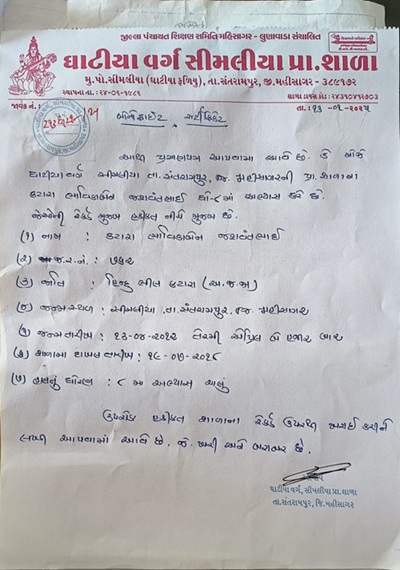 જીલ્લા પંચાયત શિક્ષણ સમિતિ મહિસાગર - લુણાવાડા સંચાલિત
ઘાટીયા વર્ગ સીમલીયા પ્રા.શાળા
મુ.પો.સીમલીયા (ઘાટીયા ફળિયુ), તા.સંતરામપુર, જી.મહીસાગર - ૩૮૯૧૭૨
સ્થાપના તા.: ૨૪-૦૧-૧૯૮૬
શાળા ડાયસ કોડ: ૨૪૩૧૦૪૧૨૭૦૩
જાવક નં. :
તા. : ૨૩ -૦૧- ૨૦૨૫
બોનોફાઈડ સર્ટીફિકેટ
આથી પ્રમાણપત્ર આપવામાં આવે છે. કે
ઘાટીયા વર્ગ સીમલીયા તા. સંતરામપુર, જી. મહીસાગરની પ્રા.શાળાના
કટારા ભાવિકાબેન જશવંતભાઈ ધો-૮માં અભ્યાસ કરે છે.
જેઓની રેકર્ડ મુજબ હકીકત નીચે મુજબ છે.
(૧) નામ : કટારા ભાવિકાબેન જશવંતભાઈ
(૨) જ.ર.નં. : ૭૫૨
(૩) જાતિ : હિન્દુ ભીલ કટારા (અ.જ.જા)
(૪) જન્મ સ્થળ : સીમલીયા .તા. સંતરામપુર, જી. મહીસાગર
(૫) જન્મ તારીખ : ૧૩-૦૪-૨૦૧૨ તેરમી એપ્રિલ બે હજાર બાર
(૬) શાળામાં દાખલ તારીખ : ૧૯-૦૭-૨૦૧૮
(૭) હાલનું ધોરણ : ૮ માં અભ્યાસ ચાલુ
ઉપરોક્ત હકીકત શાળાના રેકર્ડ ઉપરથી ખરાઈ કરીને
લખી આપવામાં આવે છે. જે ખરી અને બરાબર છે.
ઘાટીયા વર્ગ, સીમલીયા પ્રા.શાળા
તા.સંતરામપુર, જિ.મહીસાગર